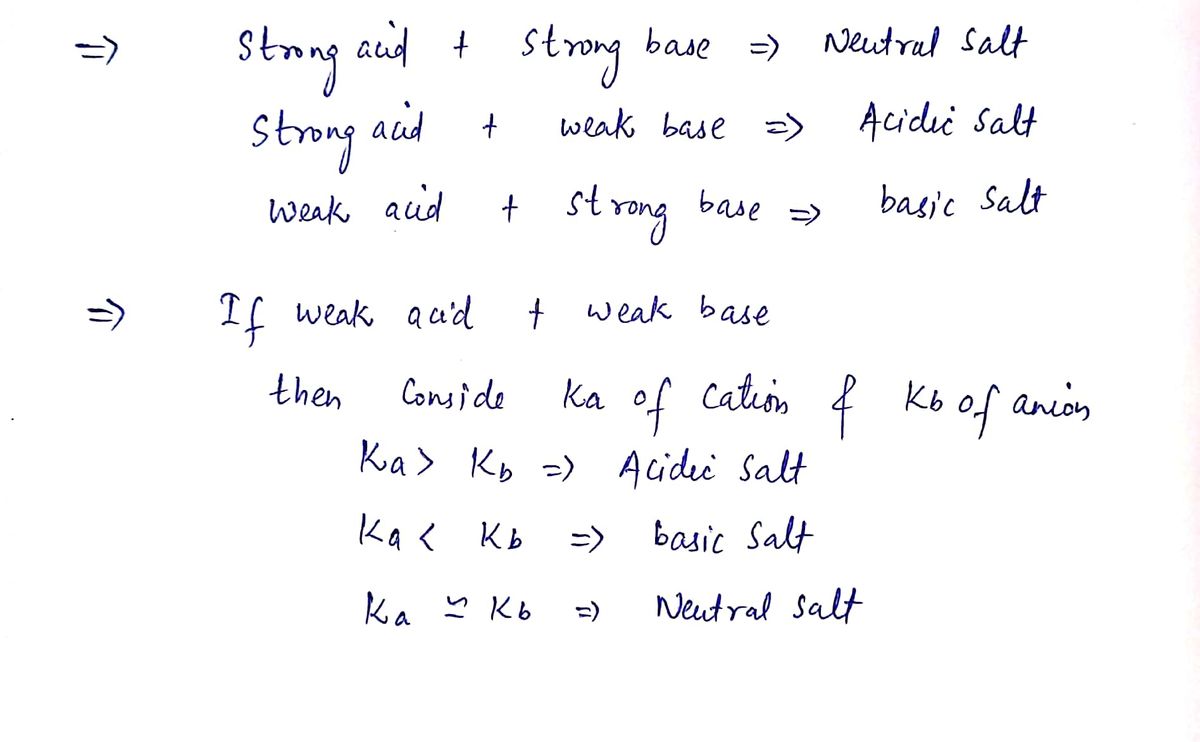 => Strong acid + Strong base => Neutral salt
Strong acid + weak base => Acidic salt
Weak acid + strong base => basic salt
=> If weak acid + weak base
then Conside Ka of Cation & Kb of anion
Ka > Kb => Acidic salt
Ka < Kb => basic salt
Ka ≃ Kb => Neutral salt